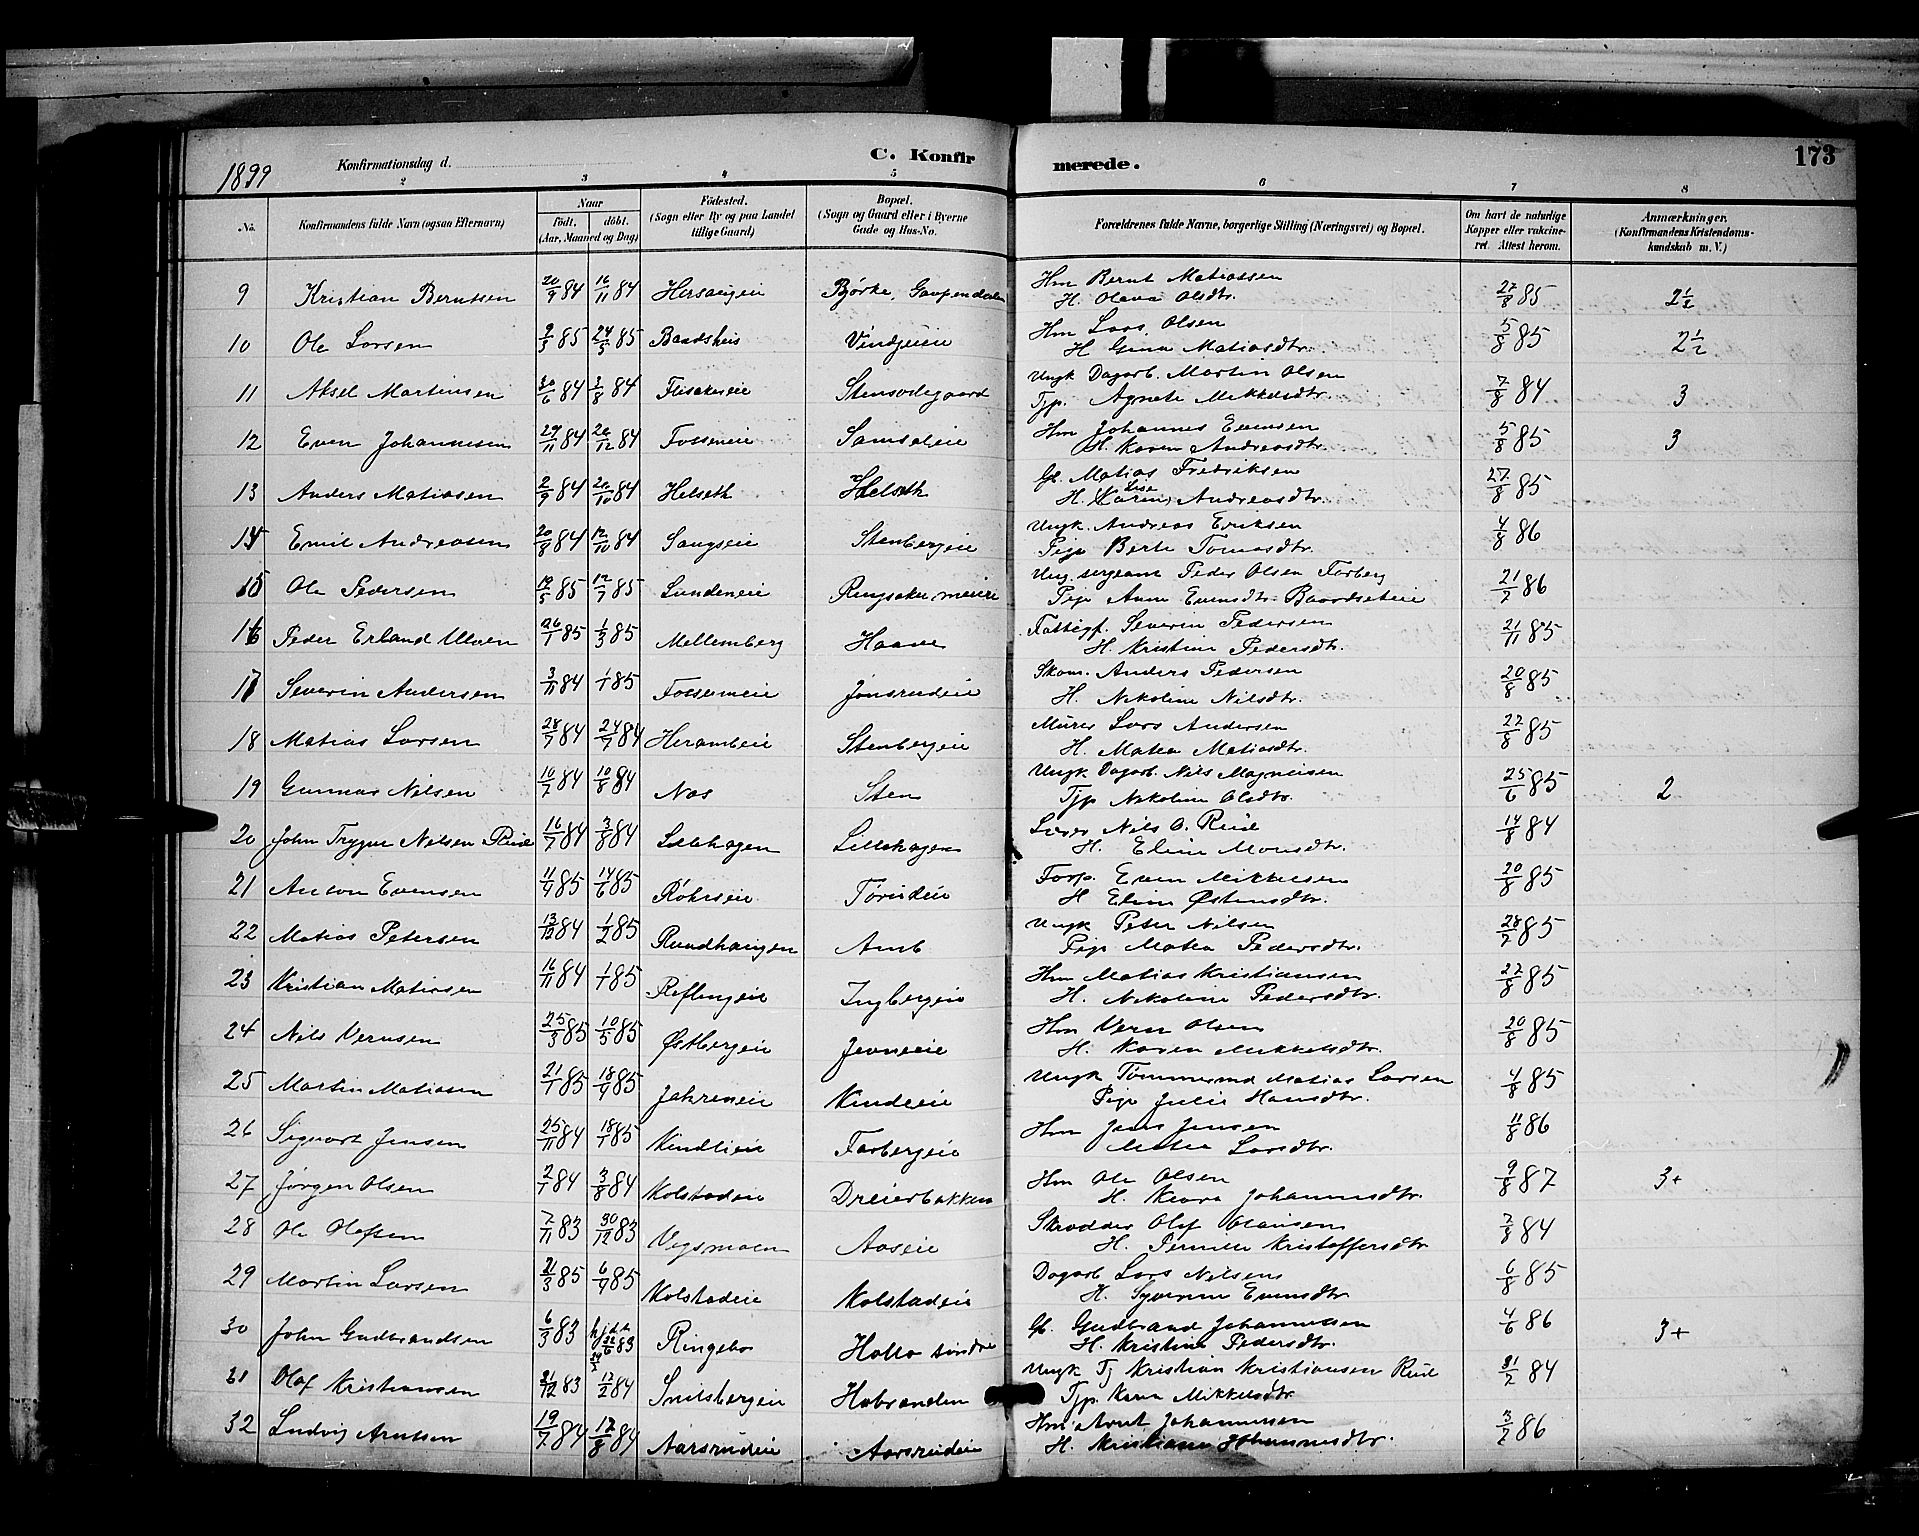 1899 Konfirmationsdag d. C. Konfirmerede. 173
2 3 4 5 6 7 8
No. Konfirmandens fulde Navn (ogsaa Efternavn) Naar født. døbt. (Aar, Maaned og Dag) Fødested. (Sogn eller By og paa Landet tillige Gaard) Bopæl. (Sogn og Gaard eller i Byerne Gade og Hus-No. Forældrenes fulde Navne, borgerlige Stilling (Næringsvei) og Bopæl. Om havt de naturlige Kopper eller vakcineret. Attest herom. Anmærkninger. (Konfirmandens Kristendomskundskab m. V.)
9 Kristian Berntsen 20/9 84 16/11 84 Hersougeie Bjørke, Gaupendalen Hm Bernt Matiassen 27/8 85 2½
H. Olava Olsdtr.
10 Ole Larsen 9/3 85 24/5 85 Vindjueie Hm Lars Olsen 5/8 85 2½
H Gina Matiasdtr.
11 Aksel Martinsen 30/6 84 3/8 84 Flisakereie Stensodegaard Ungk Dagarb. Martin Olsen 7/8 84 3
Tjp. Agnete Mikkelsdtr.
12 Even Johannesen 29/11 84 26/12 84 Fosseneie Samsaleie Hm Johannes Evensen 5/8 85 3
H. Karen Andreasdtr.
13 Anders Matiasen 2/9 84 20/10 84 Helseth Helseth G. Matias Fredriksen 27/8 85
H. Karen Lise Andreasdtr.
14 Emil Andreasen 20/8 84 12/10 84 Saugseie Stenbergeie Ungk. Andreas Eriksen 4/8 86
Pige Berte Tomasdtr.
15 Ole Pedersen 19/5 85 12/7 85 Lundeneie Ringsaker meieri Ung. sergeant Peder Olsen Farberg 21/7 86
Pige Anne Evensdtr. Baardseteie
16 Peder Erland Ulven 26/1 85 1/3 85 Mellemberg Haave Fattigf. Severin Pedersen 21/11 85
H. Kristine Pedersdtr.
17 Severin Andersen 3/11 84 1/1 85 Fosseneie Jønsrudeie Skom. Anders Pedersen 20/8 85
H. Nikoline Nilsdtr.
18 Matias Larsen 28/7 84 24/7 84 Herambeie Stenbergeie Murer Lars Andersen 22/8 85
H. Matea Matiasdtr.
19 Gunnar Nilsen 10/7 84 10/8 84 Nes Sten Ungk Dagarb. Nils Magnusen 25/6 85 2
Tjp Nikoline Olsdtr.
20 John Trygve Nilsen Rud 16/7 84 3/8 84 Lillehagen Lillehagen Lærer Nils O. Rud 14/8 84
H. Eline Monsdtr.
21 Anton Evensen 11/9 85 14/6 85 Røhrseie Tørudeie Forp. Even Mikkelsen 20/8 85
H Eline Østensdtr.
22 Matias Petersen 13/12 84 1/2 85 Rundhaugen Amb Ungk Peter Nilsen 28/7 85
Pige Matea Pedersdtr.
23 Kristian Matiasen 16/11 84 1/1 85 Reflingeie Ingbergeie Hm Matias Kristiansen 22/8 85
H. Nikoline Pedersdtr.
24 Nils Vernsen 25/3 85 10/5 85 Østbergeie Jevneeie Hm Vern Olsen 20/8 85
H. Karen Mikkelsdtr.
25 Martin Matiasen 21/1 85 18/9 85 Jahreneie Kindeie Ungk Tømmermd Matias Larsen 4/8 85
Pige Julie Hansdtr.
26 Sigvart Jensen 25/11 84 18/1 85 Kindlieie Farbergeie Hm Jens Jensen 11/8 86
Matea Larsdtr.
27 Jørgen Olsen 2/7 84 3/8 84 Kolstadeie Dreierbakken Hm Ole Olsen 9/8 87 3+
H. Johannesdtr.
28 Ole Olafsen 7/11 83 30/12 83 Vegsmoen Aaseie Skrædder Olaf Olausen 7/8 84
H. Pernille Kristoffersdtr
29 Martin Larsen 21/3 85 6/9 85 Kolstadeie Kolstadeie Dagarb Lars Nilsen 6/8 85
H. Syverine Evensdtr
30 John Gudbrandsen 6/3 83 hjd. 22/6 83 Ringebo Halla søndre G. Gudbrand Johannesen 4/6 86 3+
H. Kristine Pedersdtr.
31 Olaf Kristiansen 21/12 83 17/2 84 Snilsbergeie Habranden Ungk Tj Kristian Kristiansen Rud 31/7 84
Tjp Karen Mikkelsdtr.
32 Ludvig Arntsen 19/7 84 17/8 84 Aarsrudeie Aarsrudeie Hm Arnt Johannesen 3/7 86
H. Kristiane Johannesdtr.